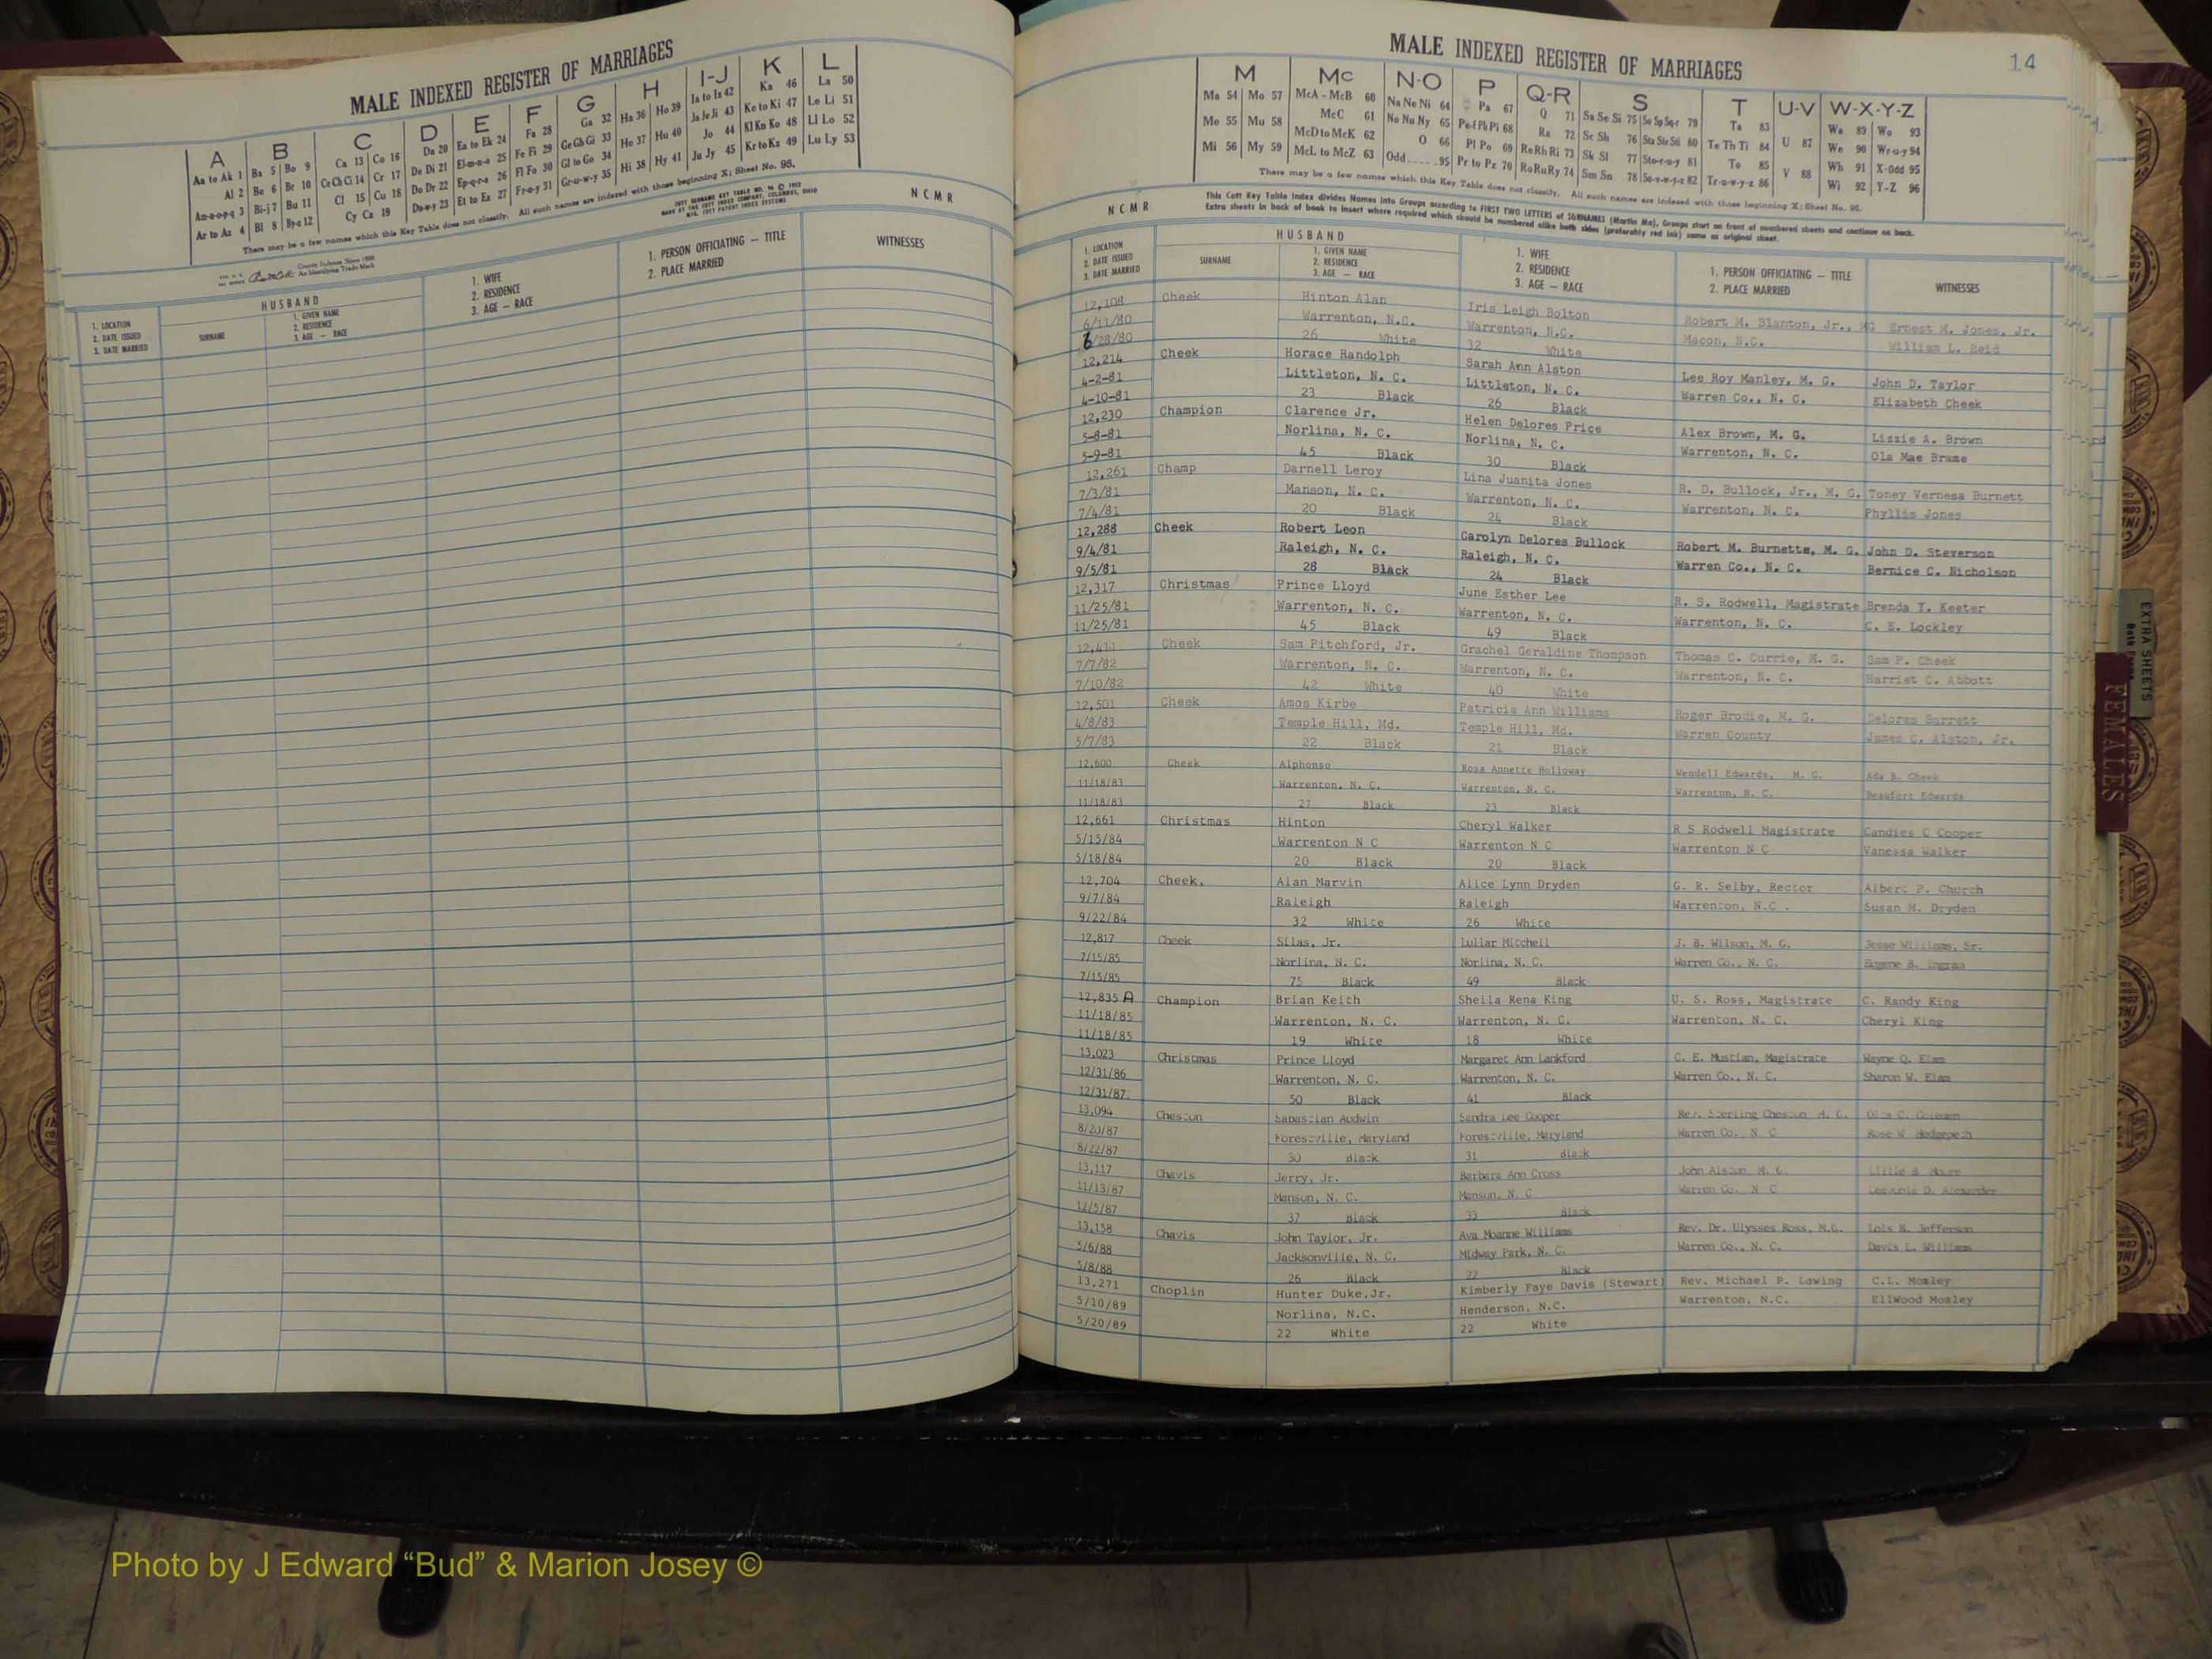 MALE INDEXED REGISTER OF MARRIAGES
A B C D E F G H I-J K L
Aa to Ak 1 Ba 5 Bo 9 Ca 13 Co 16 Da 20 Ea to Ek 24 Fa 28 Ga 32 Ha 36 Ho 39 Ia to Iz 42 Ka 46 La 50
Al 2 Be 6 Br 10 Ce Ch Ci 14 Cr 17 De Di 21 El-m-n-o 25 Fe Fi 29 Ge Gh Gi 33 He 37 Hu 40 Ja Je Ji 43 Ke to Ki 47 Le Li 51
Am-n-o-p-q 3 Bi-j 7 Bu 11 Cl 15 Cu 18 Do Dr 22 Ep-q-r-s 26 Fl Fo 30 Gl to Go 34 Hi 38 Hy 41 Jo 44 Kl Kn Ko 48 Ll Lo 52
Ar to Az 4 Bl 8 By-z 12 Cy Cz 19 Du-w-y 23 Et to Ex 27 Fr-u-y 31 Gr-u-w-y 35 Ju Jy 45 Kr to Kz 49 Lu Ly 53
There may be a few names which this Key Table does not classify. All such names are indexed with those beginning X; Sheet No. 95.
County Indexes Since 1888
An Identifying Trade Mark
COTT SURNAME KEY TABLE NO. 96 © 1952
MADE BY THE COTT INDEX COMPANY, COLUMBUS, OHIO
MFG. COTT PATENT INDEX SYSTEMS
N C M R
HUSBAND
1. LOCATION
2. DATE ISSUED
3. DATE MARRIED
SURNAME
1. GIVEN NAME
2. RESIDENCE
3. AGE — RACE
1. WIFE
2. RESIDENCE
3. AGE — RACE
1. PERSON OFFICIATING — TITLE
2. PLACE MARRIED
WITNESSES
MALE INDEXED REGISTER OF MARRIAGES
14
M Mc N-O P Q-R S T U-V W-X-Y-Z
Ma 54 Mo 57 McA - McB 60 Na Ne Ni 64 Pa 67 Q 71 Sa Se Si 75 So Sp Sq-r 79 Ta 83 Wa 89 Wo 93
Me 55 Mu 58 McC 61 No Nu Ny 65 Pe-f Ph Pi 68 Ra 72 Sc Sh 76 Sta Ste Sti 80 Te Th Ti 84 U 87 We 90 Wr-u-y 94
Mi 56 My 59 McD to McK 62 O 66 Pl Po 69 Re Rh Ri 73 Sk Sl 77 Sto-r-u-y 81 To 85 Wh 91 X-odd 95
McL to McZ 63 Odd 95 Pr to Pz 70 Ro Ru Ry 74 Sm Sn 78 Su-v-w-y-z 82 Tr-u-w-y-z 86 V 88 Wi 92 Y-Z 96
There may be a few names which this Key Table does not classify. All such names are indexed with those beginning X; Sheet No. 95.
This Cott Key Table Index divides Names into Groups according to FIRST TWO LETTERS of SURNAMES (Martin Ma), Groups start on front of numbered sheets and continue on back.
Extra sheets in back of book to insert where required which should be numbered alike both sides (preferably red ink) same as original sheet.
N C M R
HUSBAND
1. LOCATION
2. DATE ISSUED
3. DATE MARRIED
SURNAME
1. GIVEN NAME
2. RESIDENCE
3. AGE — RACE
1. WIFE
2. RESIDENCE
3. AGE — RACE
1. PERSON OFFICIATING — TITLE
2. PLACE MARRIED
WITNESSES
12,108 Cheek Hinton Alan Iris Leigh Bolton Robert M. Blanton, Jr., MG Ernest M. Jones, Jr.
6/11/80 Warrenton, N.C. Warrenton, N.C. Macon, N.C. William L. Reid
6/28/80 26 White 32 White
12,214 Cheek Horace Randolph Sarah Ann Alston Lee Roy Manley, M. G. John D. Taylor
4-2-81 Littleton, N. C. Littleton, N. C. Warren Co., N. C. Elizabeth Cheek
4-10-81 23 Black 26 Black
12,230 Champion Clarence Jr. Helen Delores Price Alex Brown, M. G. Lizzie A. Brown
5-8-81 Norlina, N. C. Norlina, N. C. Warrenton, N. C. Ola Mae Brame
5-9-81 45 Black 30 Black
12,261 Champ Darnell Leroy Lina Juanita Jones R. D. Bullock, Jr., M. G. Toney Vernesa Burnett
7/3/81 Manson, N. C. Warrenton, N. C. Warrenton, N. C. Phyllis Jones
7/4/81 20 Black 24 Black
12,288 Cheek Robert Leon Carolyn Delores Bullock Robert M. Burnette, M. G. John D. Steverson
9/4/81 Raleigh, N. C. Raleigh, N. C. Warren Co., N. C. Bernice C. Nicholson
9/5/81 28 Black 24 Black
12,317 Christmas Prince Lloyd June Esther Lee R. S. Rodwell, Magistrate Brenda Y. Keeter
11/25/81 Warrenton, N. C. Warrenton, N. C. Warrenton, N. C. C. E. Lockley
11/25/81 45 Black 49 Black
12,411 Cheek Sam Pitchford, Jr. Grachel Geraldine Thompson Thomas C. Currie, M. G. Sam P. Cheek
7/7/82 Warrenton, N. C. Warrenton, N. C. Warrenton, N. C. Harriet C. Abbott
7/10/82 42 White 40 White
12,501 Cheek Amos Kirbe Patricia Ann Williams Roger Brodie, M. G. Delores Barrett
4/8/83 Temple Hill, Md. Temple Hill, Md. Warren County James C. Alston, Jr.
5/7/83 22 Black 21 Black
12,600 Cheek Alphonso Rosa Annette Holloway Wendell Edwards, M. G. Ada B. Cheek
11/18/83 Warrenton, N. C. Warrenton, N. C. Warrenton, N. C. Beaufort Edwards
11/18/83 27 Black 23 Black
12,661 Christmas Hinton Cheryl Walker R S Rodwell Magistrate Candies C Cooper
5/15/84 Warrenton N C Warrenton N C Warrenton N C Vanessa Walker
5/18/84 20 Black 20 Black
12,704 Cheek, Alan Marvin Alice Lynn Dryden G. R. Selby, Rector Albert P. Church
9/7/84 Raleigh Raleigh Warrenton, N.C . Susan H. Dryden
9/22/84 32 White 26 White
12,817 Cheek Silas, Jr. Lullar Mitchell J. B. Wilson, M. G. Jesse Williams, Sr.
7/15/85 Norlina, N. C. Norlina, N. C. Warren Co., N. C. Eugene B.
7/15/85 75 Black 49 Black
12,835 A Champion Brian Keith Sheila Rena King U. S. Ross, Magistrate C. Randy King
11/18/85 Warrenton, N. C. Warrenton, N. C. Warrenton, N. C. Cheryl King
11/18/85 19 White 18 White
13,023 Christmas Prince Lloyd Margaret Ann Lankford C. E. Mustian, Magistrate Wayne Q. Elam
12/31/86 Warrenton, N. C. Warrenton, N. C. Warren Co., N. C. Sharon W. Elam
12/31/87 50 Black 41 Black
13,094 Cheston Sabastian Audwin Sandra Lee Cooper Rev. Sterling Cheston M. G.
8/20/87 Forestville, Maryland Forestville, Maryland Warren Co. N C Rose W
8/22/87 30 Black 31 Black
13,117 Chavis Jerry, Jr. Barbara Ann Cross John Alston, M. G.
11/13/87 Manson, N. C. Manson, N. C Warren Co. N C Alexander
12/5/87 37 Black 33 Black
13,158 Chavis John Taylor, Jr. Ava Moanne Williams Rev. Dr. Ulysses Ross, M.G. Lois B. Jefferson
5/6/88 Jacksonville, N. C. Midway Park, N. C. Warren Co., N. C. Davis L. Williams
5/8/88 26 Black 22 Black
13,271 Choplin Hunter Duke,Jr. Kimberly Faye Davis (Stewart) Rev. Michael P. Lawing C.L. Mosley
5/10/89 Norlina, N.C. Henderson, N.C. Warrenton, N.C. EllWood Mosley
5/20/89 22 White 22 White
EXTRA SHEETS
FEMALES
Photo by J Edward “Bud” & Marion Josey ©